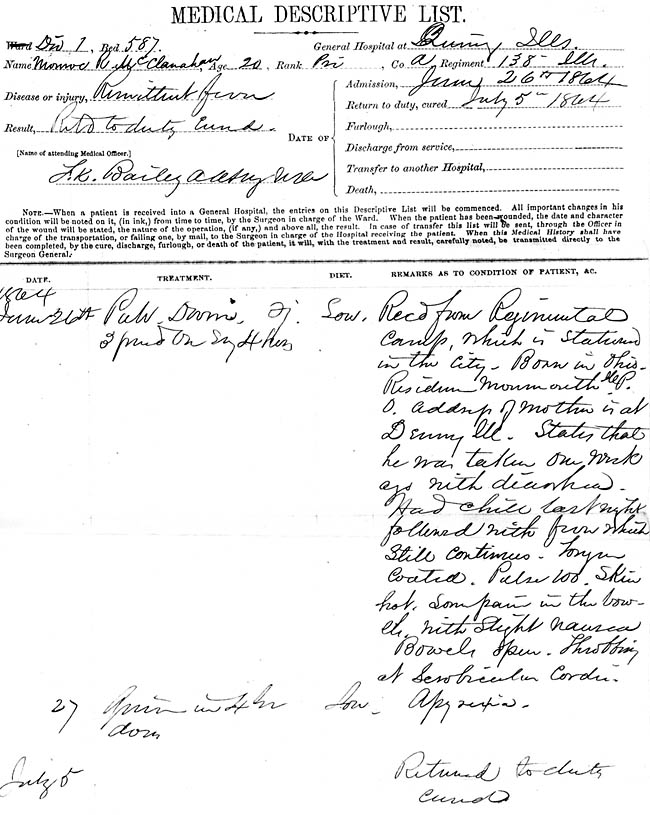 MEDICAL DESCRIPTIVE LIST.
Ward Div 1, Bed 587. General Hospital at Quincy Ills.
Name Monroe R McClanahan, Age 20, Rank Pri, Co. A, Regiment 138 Ills.
Disease or injury, Remittent fever
Result, Retd to duty Cured.
[Name of attending Medical Officer.]
F.K. Bailey
DATE OF
Admission, June 26th 1864
Return to duty, cured July 5th 1864
Furlough,
Discharge from service,
Transfer to another Hospital,
Death,
NOTE.—When a patient is received into a General Hospital, the entries on this Descriptive List will be commenced. All important changes in his
condition will be noted on it, (in ink,) from time to time, by the Surgeon in charge of the Ward. When the patient has been wounded, the date and character
of the wound will be stated, the nature of the operation, (if any,) and above all, the result. In case of transfer this list will be sent, through the Officer in
charge of the transportation, or failing one, by mail, to the Surgeon in charge of the Hospital receiving the patient. When this Medical History shall have
been completed, by the cure, discharge, furlough, or death of the patient, it will, with the treatment and result, carefully noted, be transmitted directly to the
Surgeon General.
DATE. TREATMENT. DIET. REMARKS AS TO CONDITION OF PATIENT, &C.
1864
June 26th Pulv Doveri, Low. Recd from Regimental
camp, which is stationed
in the City. Born in Ohio.
Residence Monmouth Ill P.
O. address of mother is at
Denny Ill. States that
he was taken one week
ago with diarrhea.
Had chill last night
followed with fever which
still continues. Tongue
Coated. Pulse 100. Skin
hot. Some pain in the bow-
els, with slight nausea
Bowels open. Throbbing
at Scrobiculus Cordis.
27 in 4 Low. Apyrexia.
July 5 Returned to duty
cured